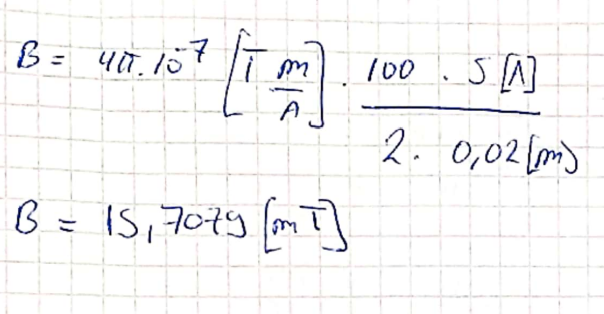 B = 4π.10^-7 [T m/A] . 100 . 5 [A] / 2 . 0,02 [m]
B = 15,7079 [mT]